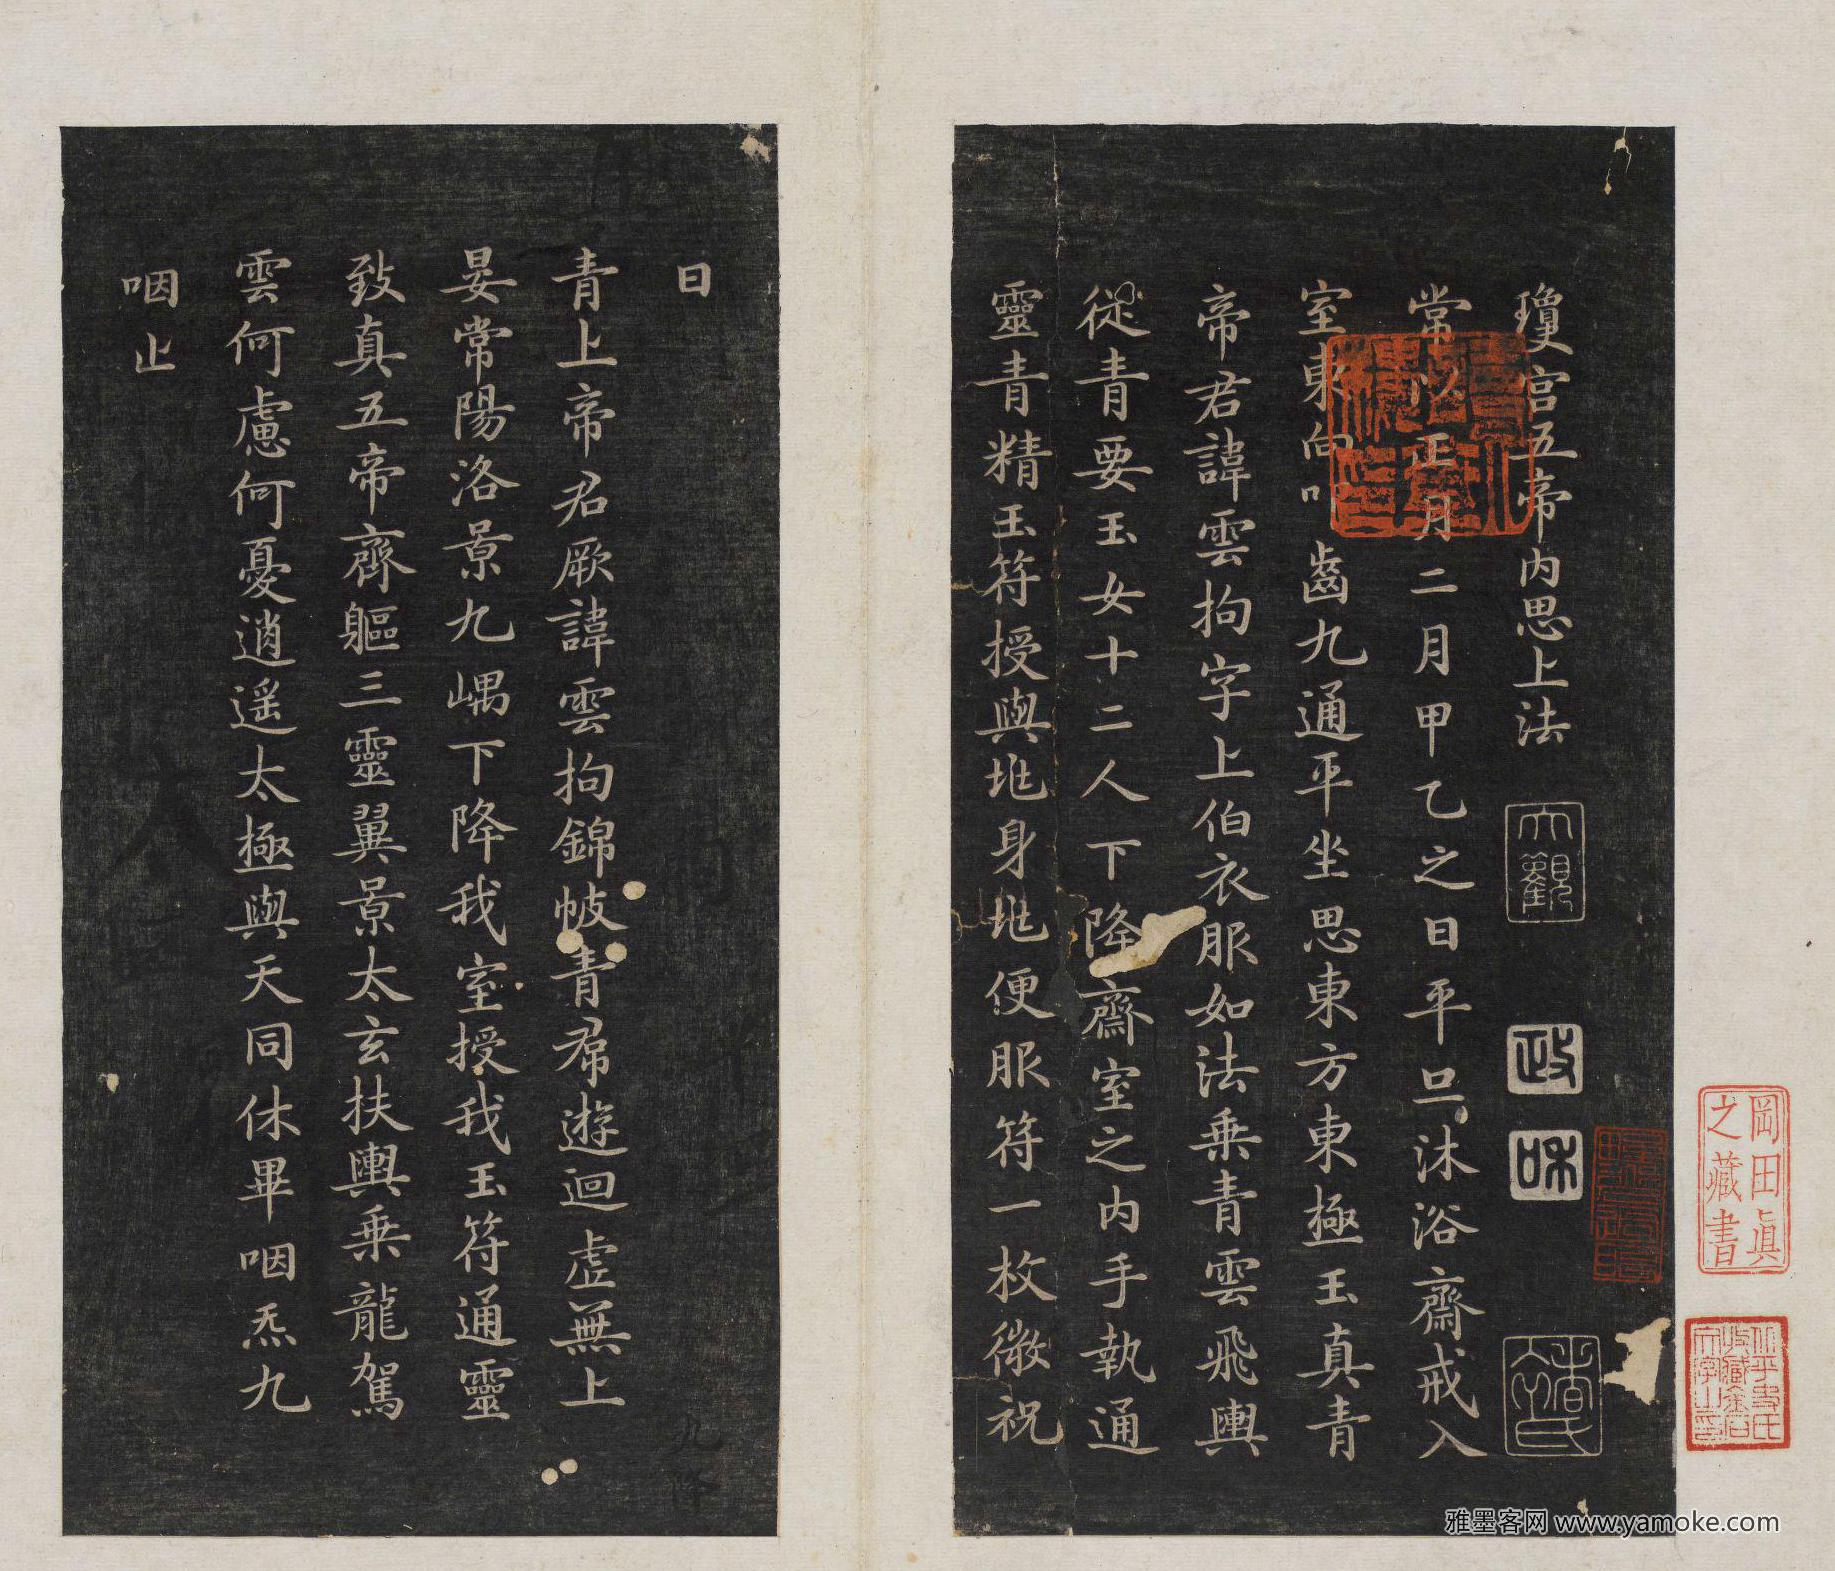 瓊宮五帝内思上法
大觀
政
和
常以正月二月甲乙之日平旦沐浴齋戒入
室東向叩齒九通平坐思東方東極玉真青
帝君諱雲拘字上伯衣服如法乘青雲飛輿
從青要玉女十二人下降齋室之内手執通
靈青精玉符授與兆身兆便服符一枚微祝
曰
青上帝君厥諱雲拘錦帔青帬遊迴虛無上
晏常陽洛景九嵎下降我室授我玉符通靈
致真五帝齊軀三靈翼景太玄扶輿乘龍駕
雲何慮何憂逍遥太極與天同休畢咽炁九
咽止
岡田眞
之藏書
雅墨客网 www.yamoke.com